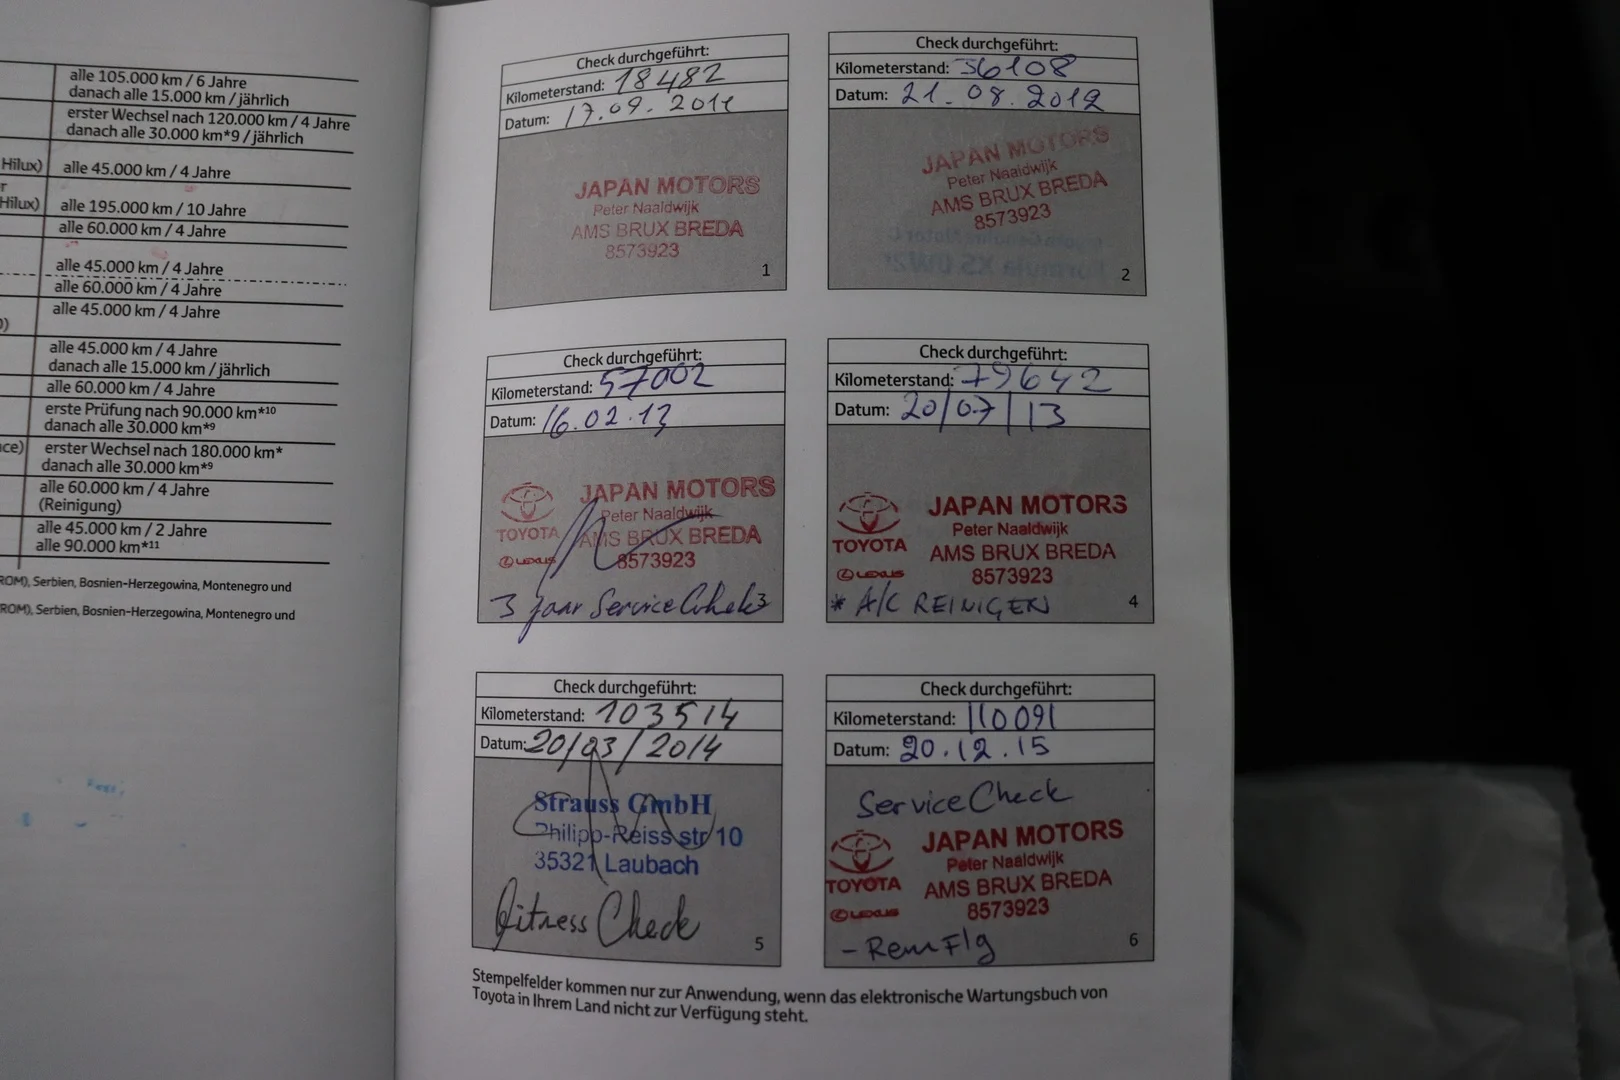 alle 105.000 km / 6 Jahre
danach alle 15.000 km / jährlich
erster Wechsel nach 120.000 km / 4 Jahre
danach alle 30.000 km*9 / jährlich
Hilux) alle 45.000 km / 4 Jahre
r
Hilux) alle 195.000 km / 10 Jahre
alle 60.000 km / 4 Jahre
alle 45.000 km / 4 Jahre
alle 60.000 km / 4 Jahre
alle 45.000 km / 4 Jahre
alle 45.000 km / 4 Jahre
danach alle 15.000 km / jährlich
alle 60.000 km / 4 Jahre
erste Prüfung nach 90.000 km*10
danach alle 30.000 km*9
ce) erster Wechsel nach 180.000 km*
danach alle 30.000 km*9
alle 60.000 km / 4 Jahre
(Reinigung)
alle 45.000 km / 2 Jahre
alle 90.000 km*11
ROM), Serbien, Bosnien-Herzegowina, Montenegro und
ROM), Serbien, Bosnien-Herzegowina, Montenegro und
Check durchgeführt:
Kilometerstand: 18482
Datum: 17.09.2011
JAPAN MOTORS
Peter Naaldwijk
AMS BRUX BREDA
8573923
1
Check durchgeführt:
Kilometerstand: 36108
Datum: 21.08.2012
JAPAN MOTORS
Peter Naaldwijk
AMS BRUX BREDA
8573923
2
Check durchgeführt:
Kilometerstand: 57002
Datum: 16.02.13
JAPAN MOTORS
Peter Naaldwijk
TOYOTA AMS BRUX BREDA
LEXUS 8573923
3 jaar Service Chek 3
Check durchgeführt:
Kilometerstand: 79642
Datum: 20/07/13
JAPAN MOTORS
Peter Naaldwijk
TOYOTA AMS BRUX BREDA
LEXUS 8573923
* A/C REINIGEN 4
Check durchgeführt:
Kilometerstand: 103514
Datum: 20/03/2014
Strauss GmbH
Philipp-Reiss str 10
35321 Laubach
Fitness Check
5
Check durchgeführt:
Kilometerstand: 110091
Datum: 20.12.15
Service Check
JAPAN MOTORS
Peter Naaldwijk
TOYOTA AMS BRUX BREDA
LEXUS 8573923
- Rem Flg 6
Stempelfelder kommen nur zur Anwendung, wenn das elektronische Wartungsbuch von
Toyota in Ihrem Land nicht zur Verfügung steht.